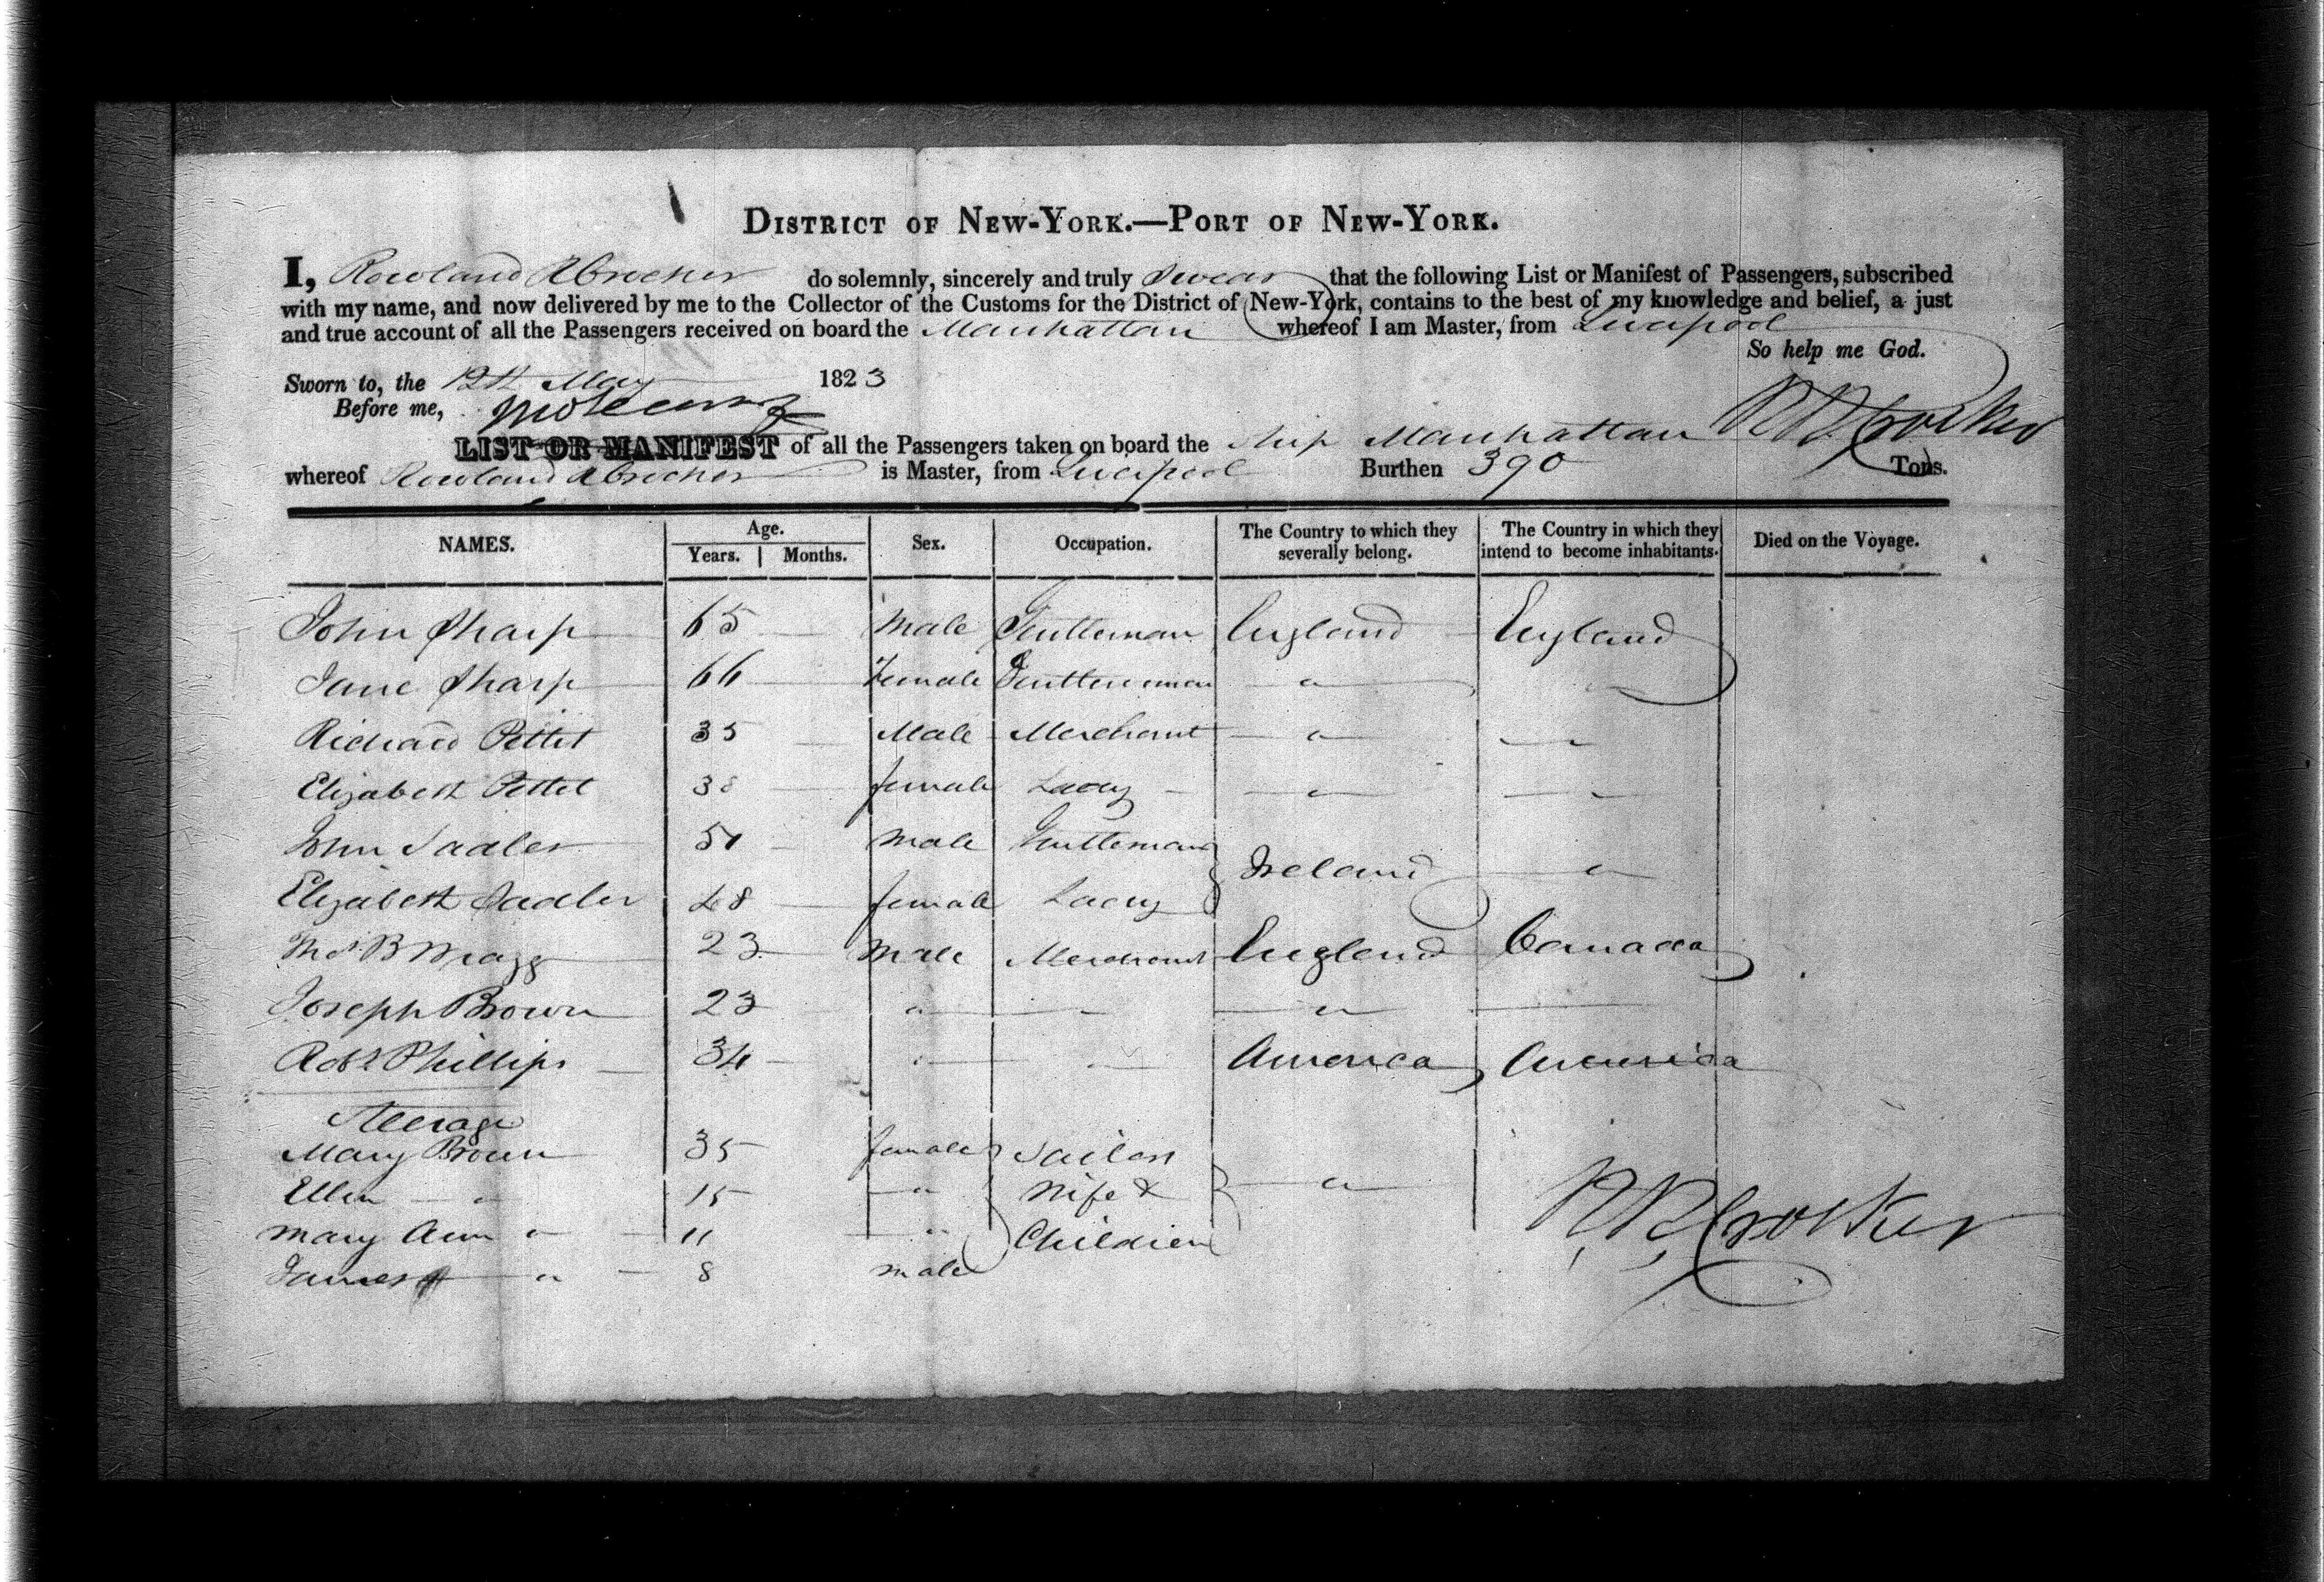 DISTRICT OF NEW-YORK.—PORT OF NEW-YORK.
I, Rowland do solemnly, sincerely and truly Swear that the following List or Manifest of Passengers, subscribed
with my name, and now delivered by me to the Collector of the Customs for the District of New-York, contains to the best of my knowledge and belief, a just
and true account of all the Passengers received on board the Manhattan whereof I am Master, from Liverpool
So help me God.
Sworn to, the 12th May 1823
Before me,
R R Crocker
LIST OR MANIFEST of all the Passengers taken on board the Ship Manhattan
whereof Rowland is Master, from Liverpool Burthen 390 Tons.
NAMES. Age. Years. Months. Sex. Occupation. The Country to which they severally belong. The Country in which they intend to become inhabitants. Died on the Voyage.
John Sharp 65 Male Gentleman England England
Jane Sharp 66 Female "
Richard Pettet 35 Male Merchant "
Elizabeth Pettet 38 female Lady "
John Sadler 51 Male Gentleman
Ireland "
Elizabeth Sadler 48 female Lady
Thos. B Wragg 23 Male Merchant England Canada
Joseph Brown 23 " "
Robt Phillips 34 " America America
Steerage
Mary Brown 35 female Sailors
Ellen " 15 " Wife & "
Mary Ann " 11 " Children
James " 8 male
R R Crocker